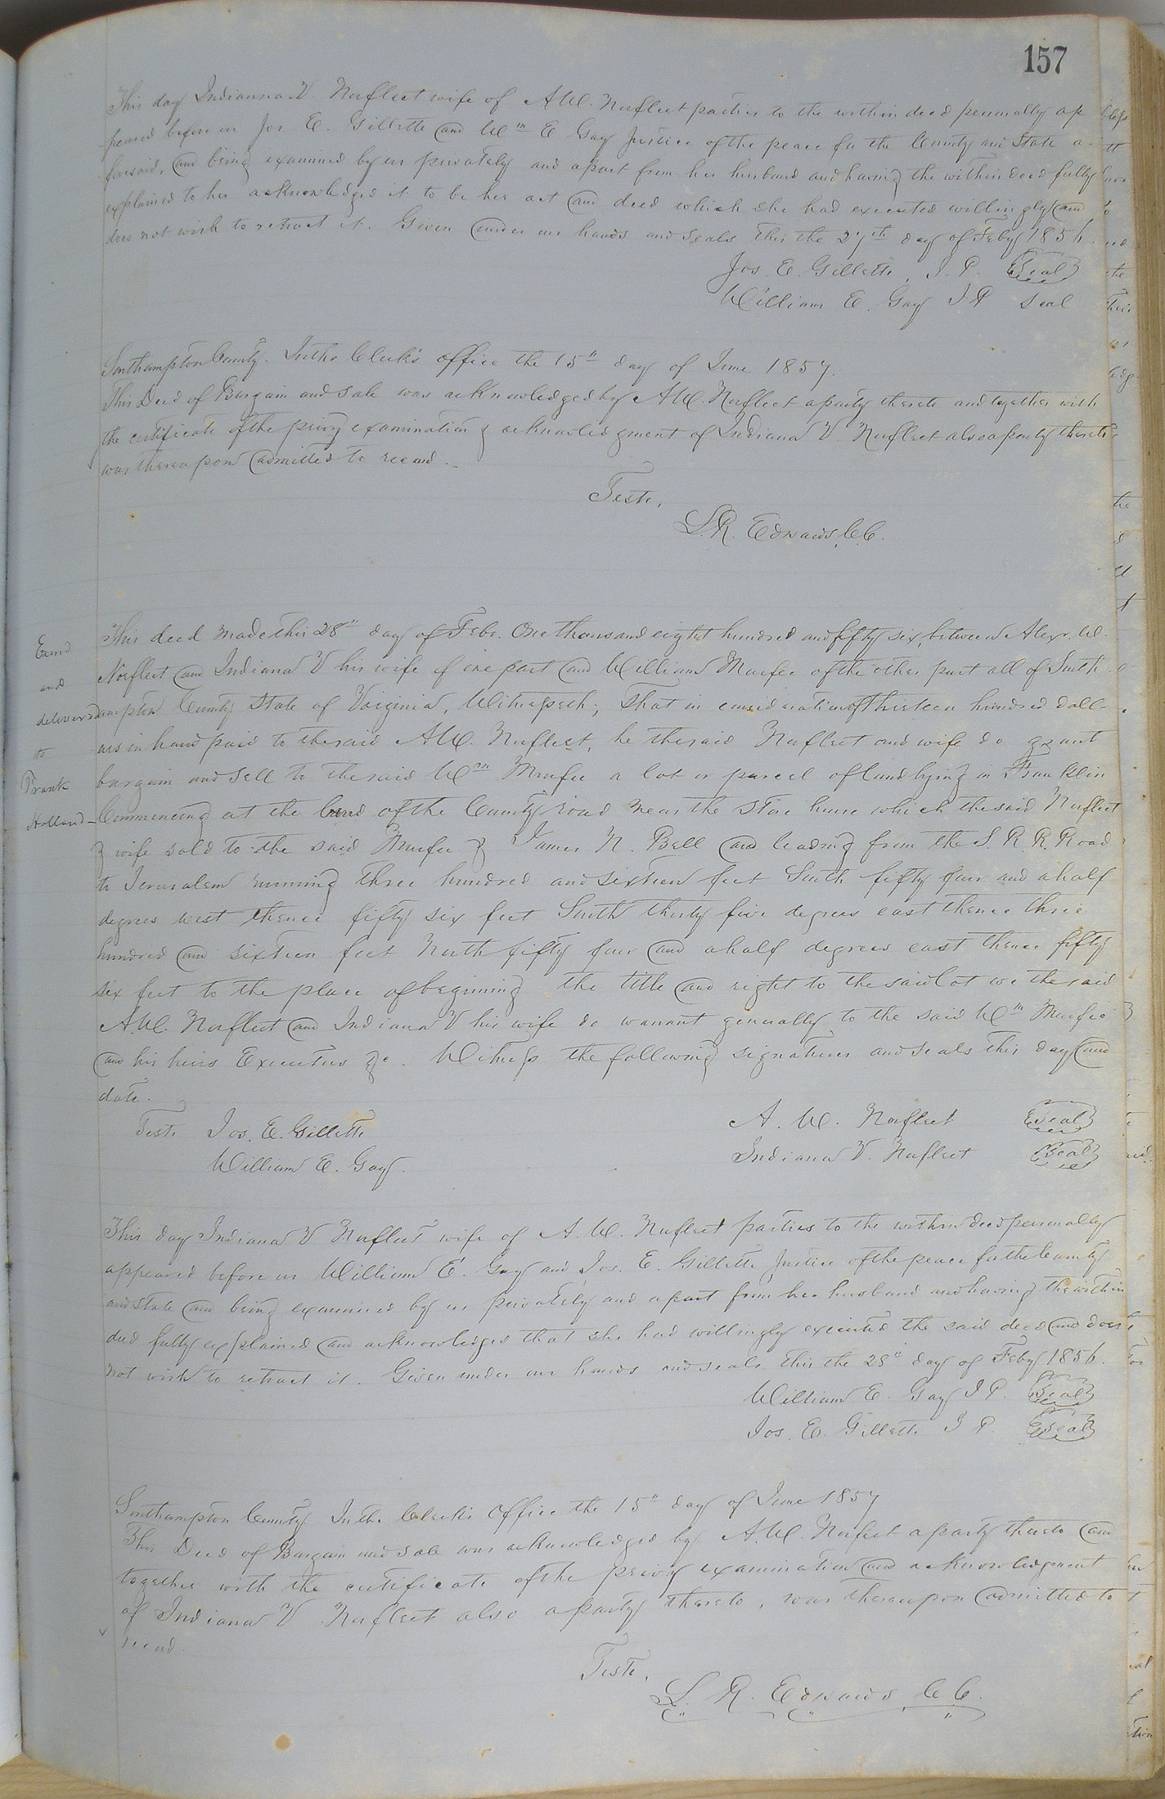 157
This day Indianna V. Norfleet wife of A W. Norfleet parties to the within deed personally ap
peared before us Jos. E. Gillette and Wm E Gay Justice of the peace for the County and State a
foresaid, and being examined by us privately and apart from her husband and having the within deed fully
explained to her acknowledged it to be her act and deed which she had executed willingly and
does not wish to retract it. Given under our hands and seals this the 27th day of Feby 1856.
Jos. E. Gillette J. P. Seal
William E. Gay J P Seal
Southampton County. In the Clerk's office the 15th day of June 1857.
This Deed of Bargain and sale was acknowledged by A W. Norfleet a party thereto and together with
the certificate of the privy examination & acknowledgment of Indiana V Norfleet also a party thereto
was thereupon admitted to record.
Teste,
L. R. Edwards, C. C.
Examd
and
delivered
to
Frank
Holland
This deed made this 28th day of Feby. One thousand eight hundred and fifty six, between Alexr. W.
Norfleet and Indiana V his wife of one part and William Murfee of the other part all of South
ampton County State of Virginia, Witnesseth; That in consideration of thirteen hundred doll-
ars in hand paid to the said A W. Norfleet, he the said Norfleet and wife do grant
bargain and sell to the said Wm Murfee a lot or parcel of land lying in Franklin
Commencing at the bend of the County road near the store house which the said Norfleet
& wife sold to the said Murfee & James N. Bell and leading from the S. R. R. Road
to Jerusalem running three hundred and sixteen feet South fifty four and a half
degrees west thence fifty six feet South thirty five degrees east thence three
hundred and sixteen feet North fifty four and a half degrees east thence fifty
six feet to the place of beginning the title and right to the said lot we the said
A. W. Norfleet and Indiana V his wife do warrant generally to the said Wm Murfee
and his heirs Executors &c. Witness the following signatures and seals this day and
date.
Teste Jos. E. Gillette A. W. Norfleet Seal
William E. Gay. Indiana V. Norfleet Seal
This day Indiana V Norfleet wife of A. W. Norfleet parties to the within deed personally
appeared before us William E. Gay and Jos. E. Gillette Justice of the peace for the County
and State and being examined by us privately and apart from her husband and having the within
deed fully explained and acknowledges that she had willingly executed the said deed and does
not wish to retract it. Given under our hands and seals this the 28th day of Feby 1856.
William E. Gay J P. Seal
Jos. E. Gillette J P. Seal
Southampton County In the Clerk's Office the 15th day of June 1857
This Deed of Bargain and sale was acknowledged by A. W. Norfleet a party thereto and
together with the certificate of the privy examination and acknowledgment
of Indiana V Norfleet also a party thereto, was thereupon admitted to
record.
Teste,
L. R. Edwards C C.